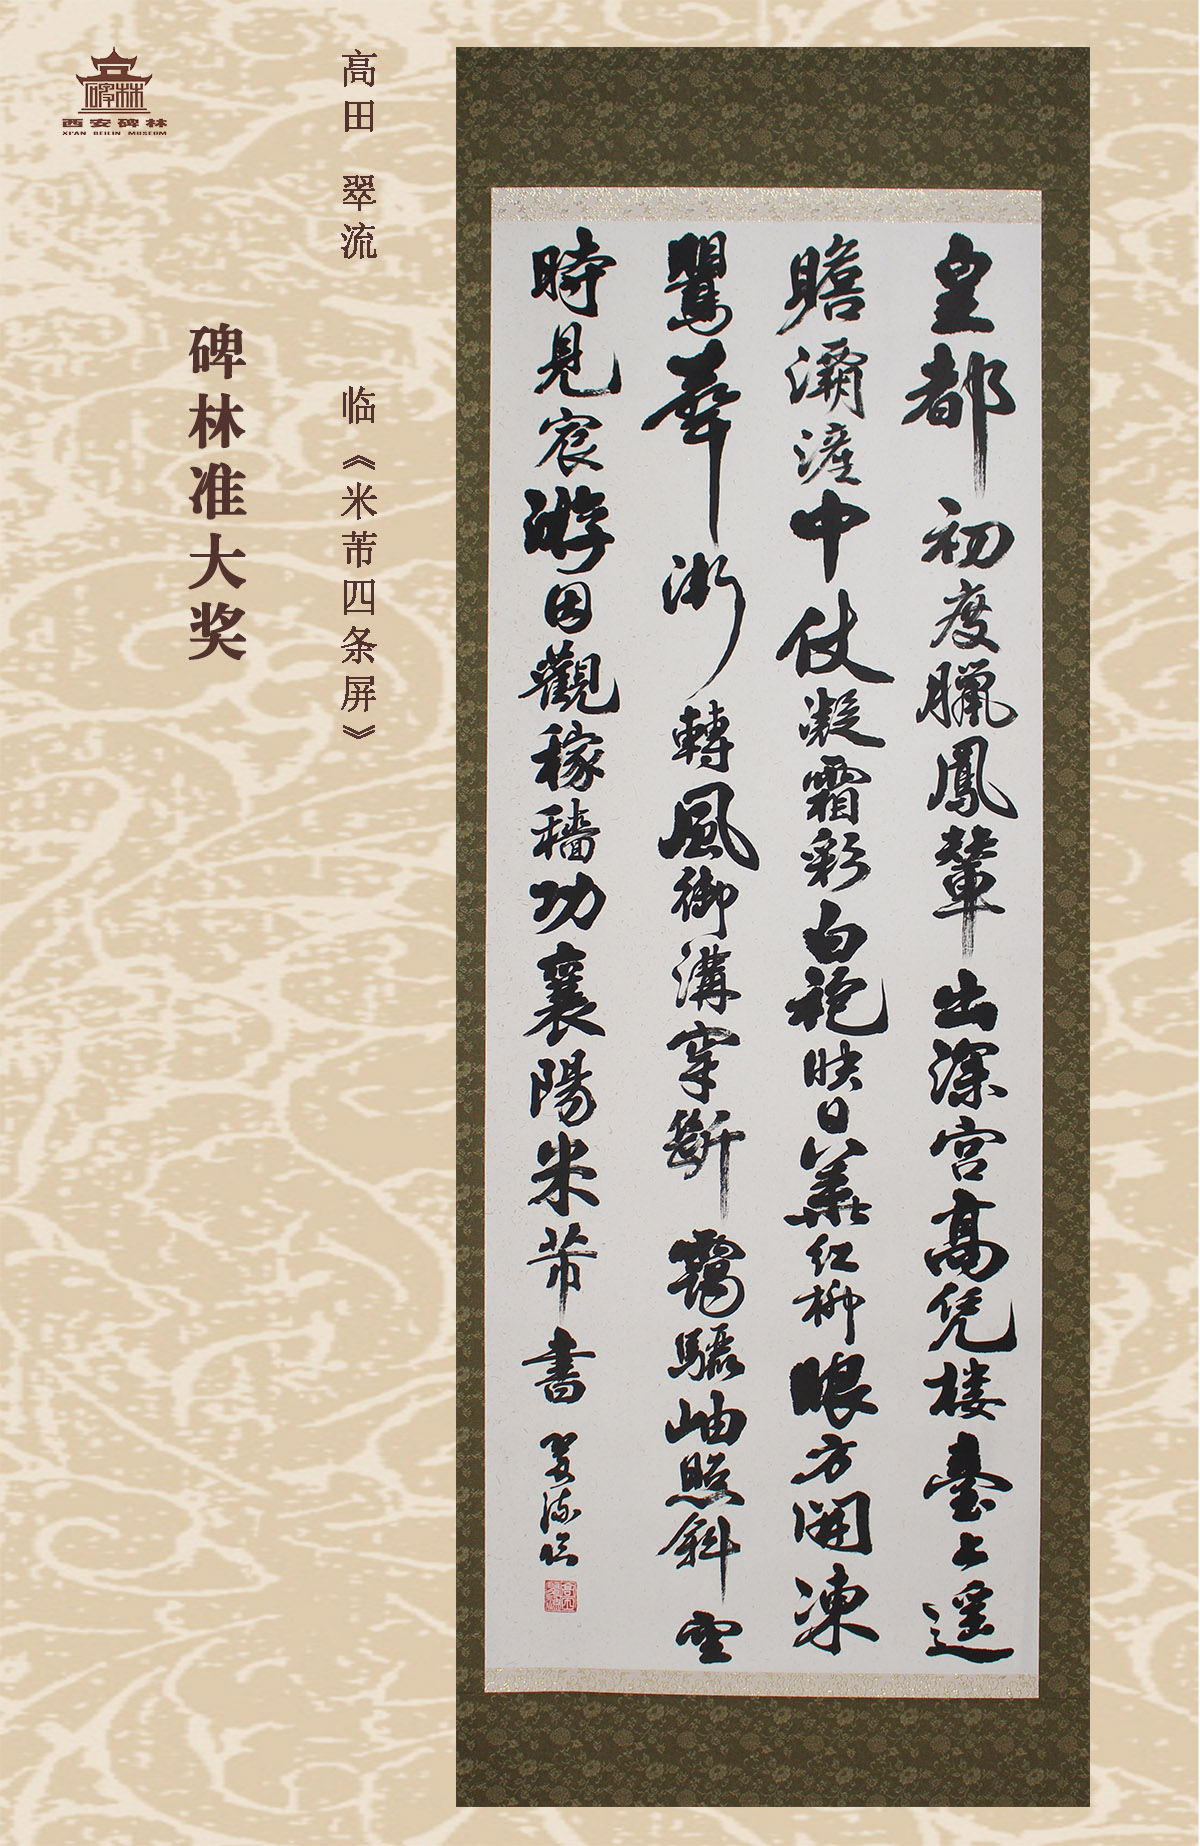 西安碑林
XI'AN BEILIN MUSEUM
高田 翠流 临《米芾四条屏》
碑林准大奖
皇都初度臘鳳輦出深宮高凭樓臺上遥
瞻灞滻中仗凝霜彩白袍映日華紅柳眼方開凍
鸎華漸轉風御溝穿斷靄驪岫照斜空
時見宸游因觀稼穡功襄陽米芾書 翠流臨